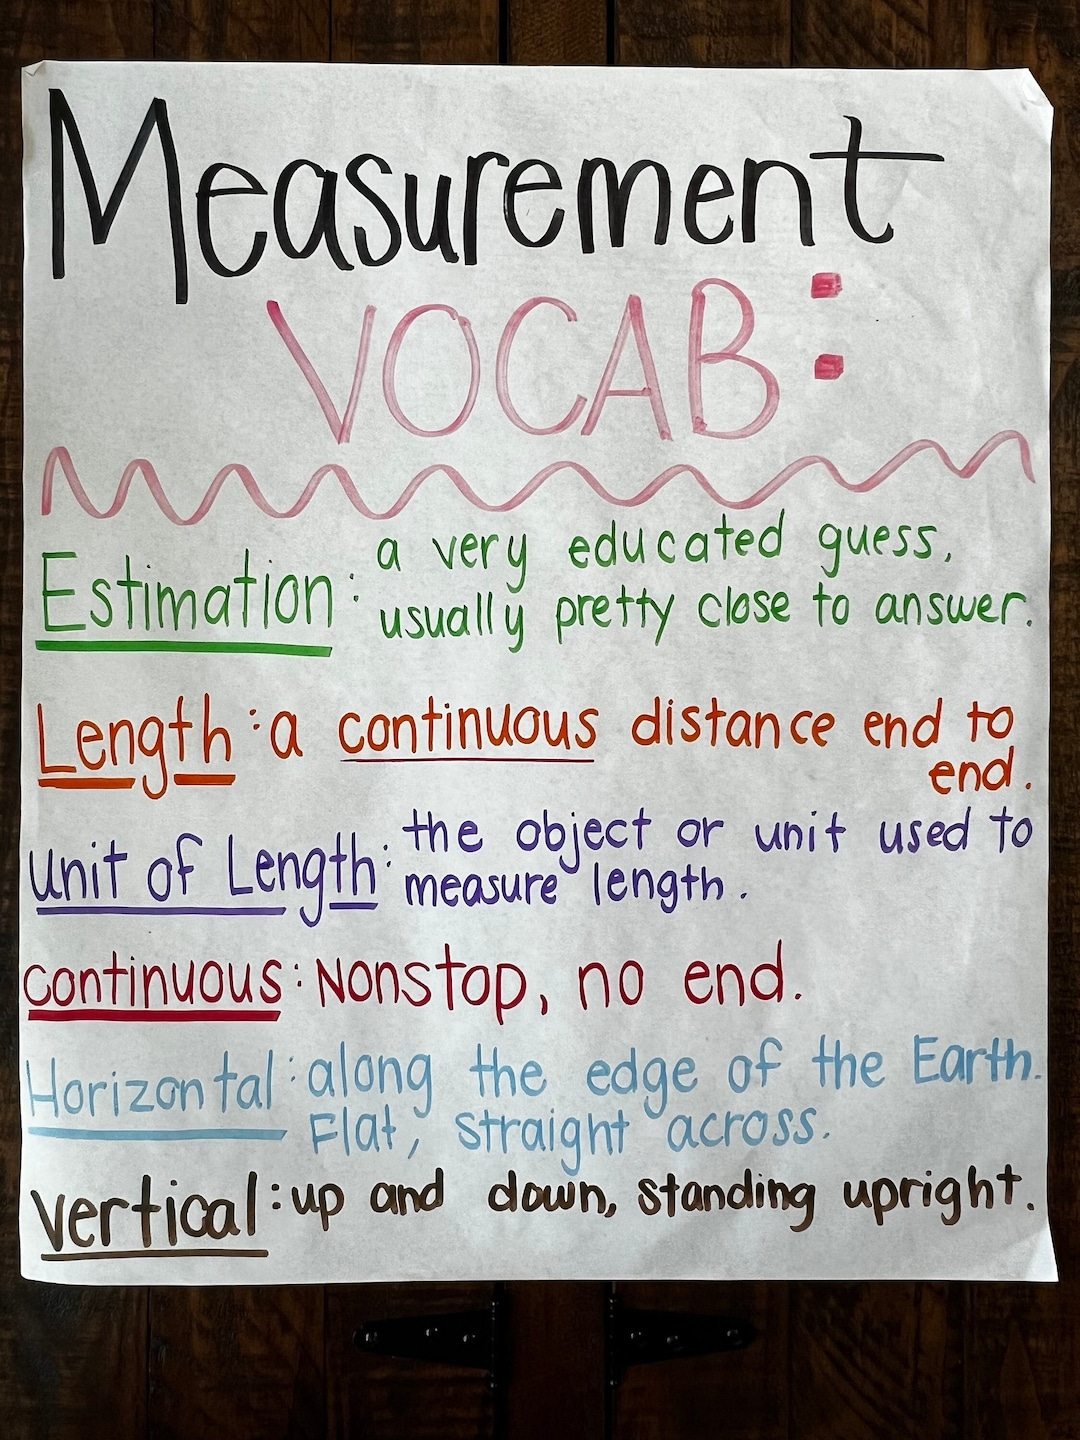 Measurement
VOCAB:
Estimation: a very educated guess,
usually pretty close to answer.
Length: a continuous distance end to
end.
Unit of Length: the object or unit used to
measure length.
continuous: Nonstop, no end.
Horizontal: along the edge of the Earth.
Flat, straight across.
vertical: up and down, standing upright.